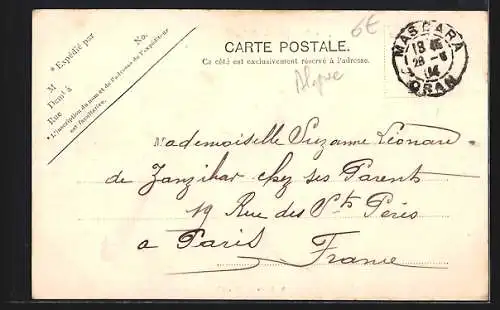 * Expédié par
No.
M
Demt à
Rue
* L'inscription du nom et de l'adresse de l'expéditeur
est facultative.
6€
CARTE POSTALE.
Ce côté est exclusivement réservé à l'adresse.
MASCARA
ORAN
Mademoiselle Suzanne Léonard
de Zanzibar chez ses Parents
19 Rue des Sts Pères
a Paris
France